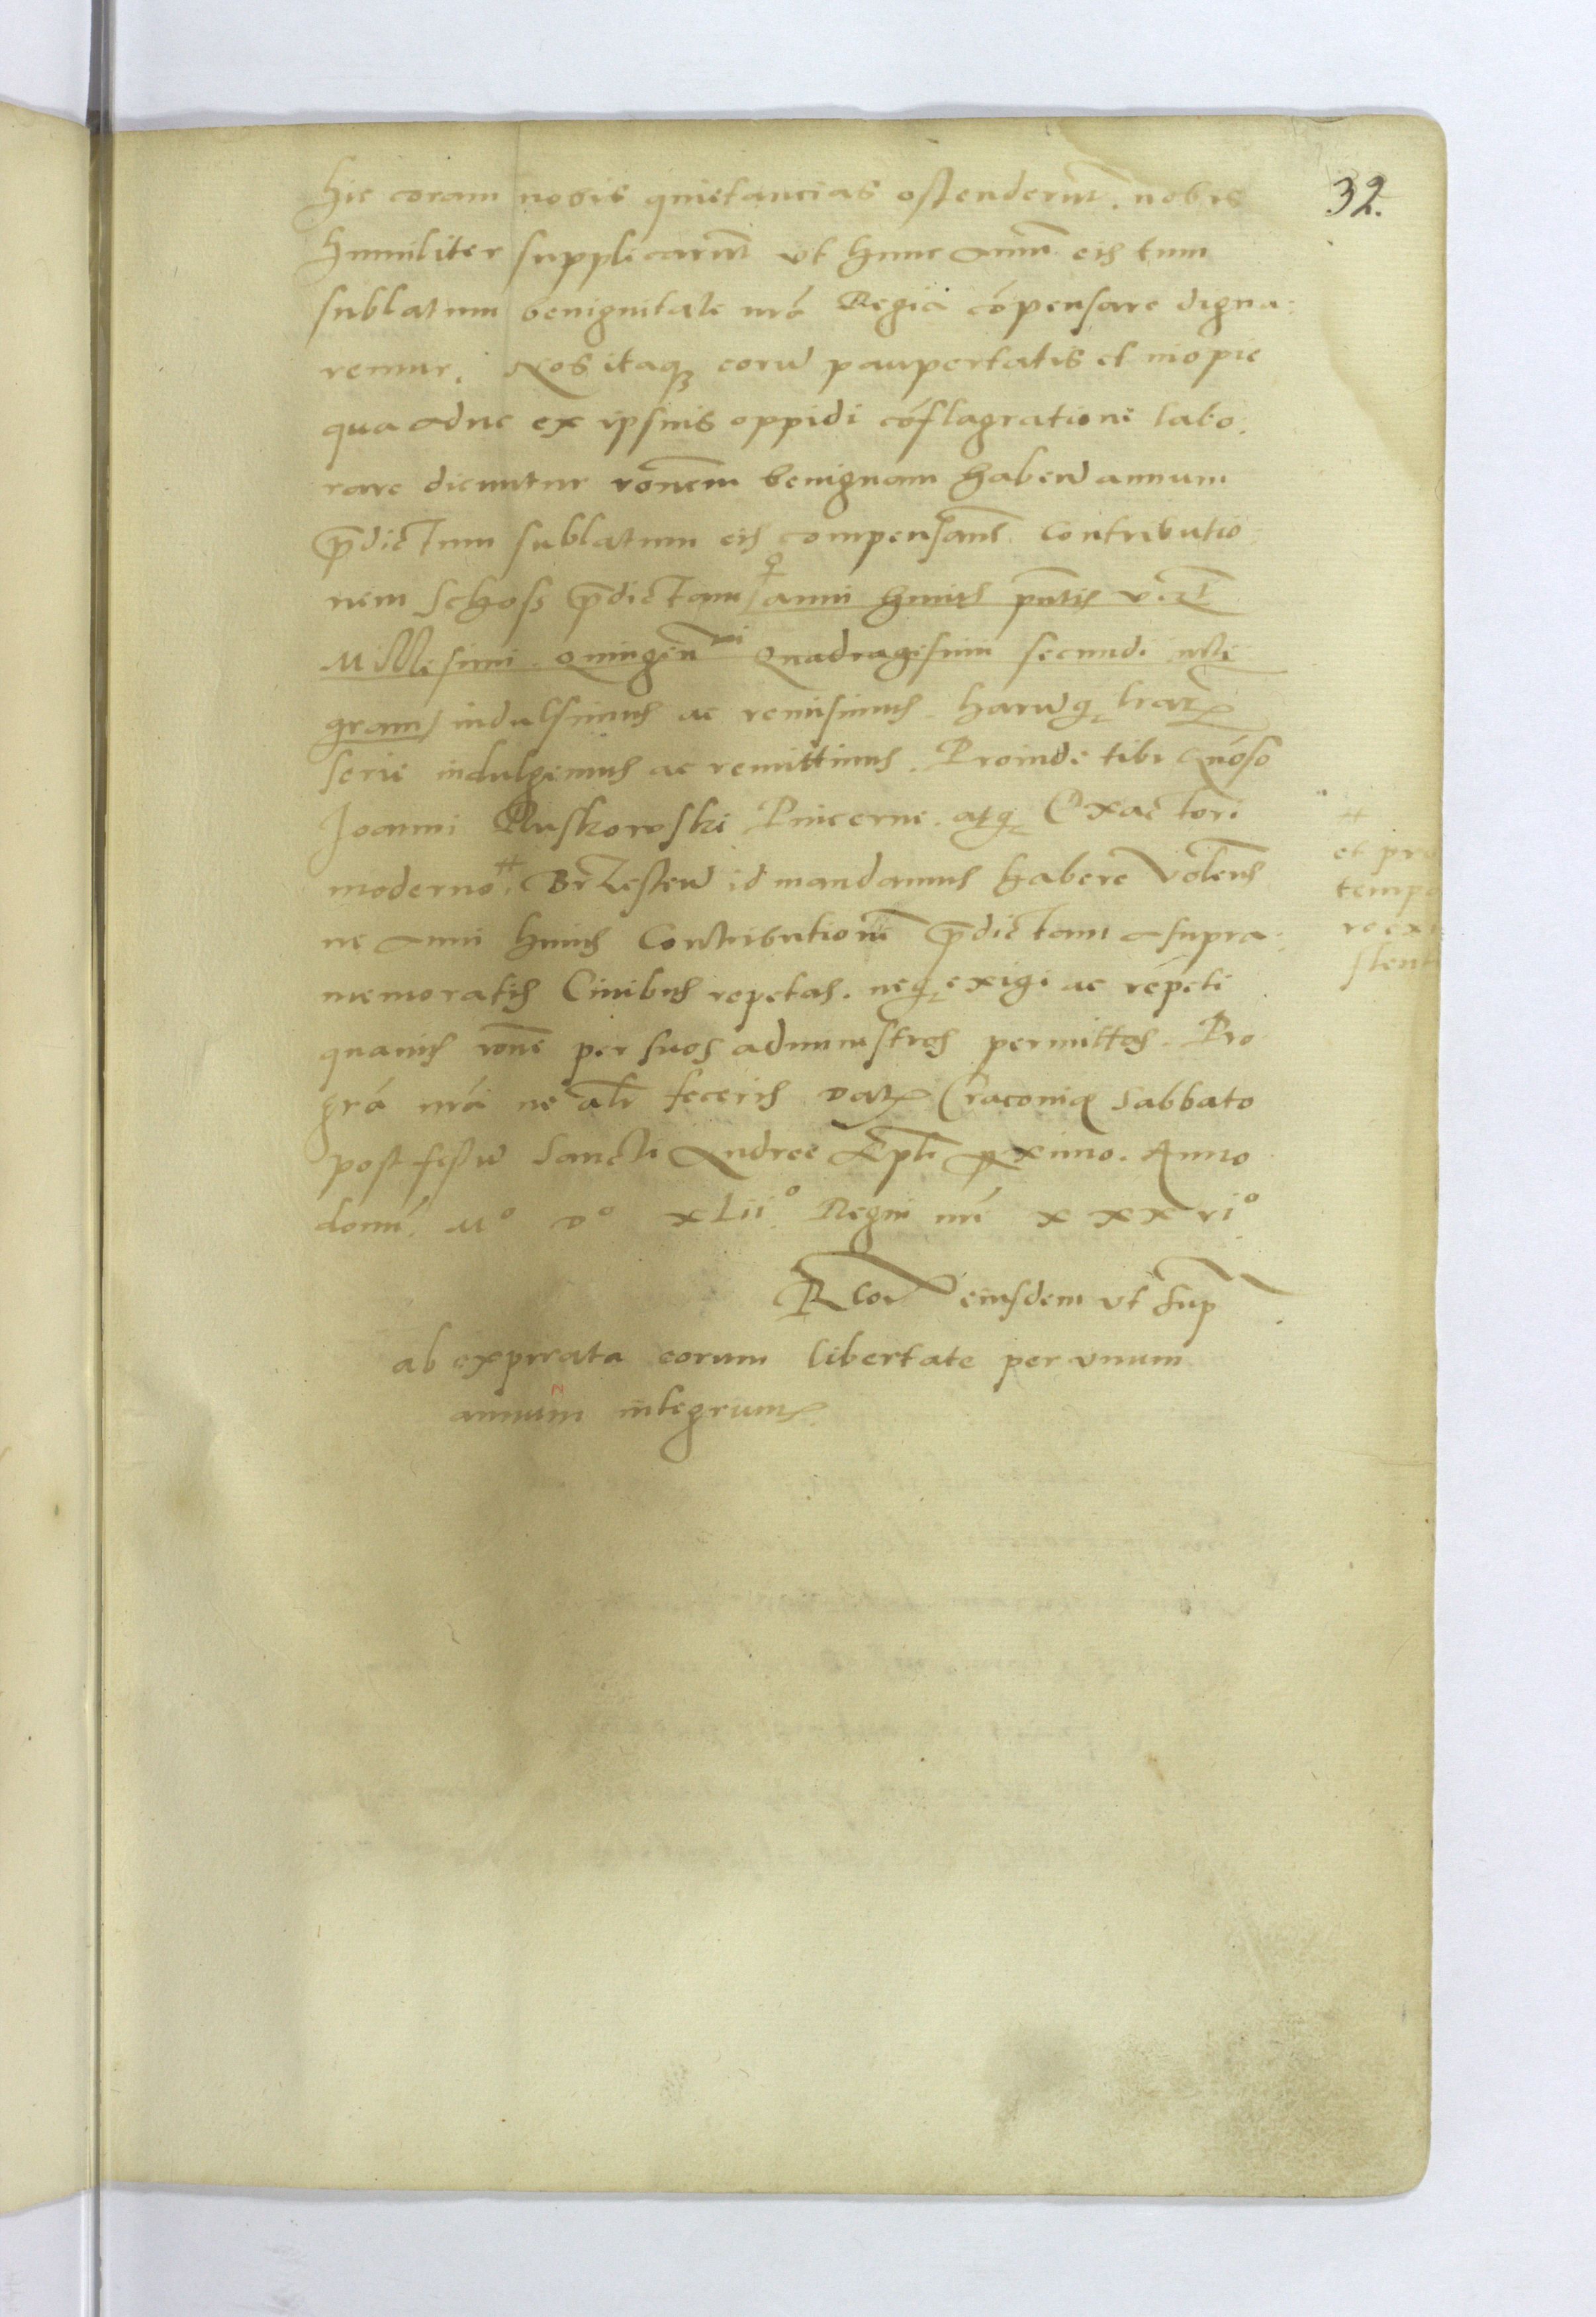 32.
hic coram nobis quietancias ostenderūt. nobis
humiliter supplicarūt vt hunc annū eis tum
sublatum benignitate nrā Regia cōpensare digna-
remur. Nos itaqȝ eorū paupertatis et inopie
qua aduc ex ipsius oppidi cōflagratione labo-
rare dicuntur rōnem benignam habeñ annum
p̄dictum sublatum eis compensañ contributio-
nem Schoss p̄dictam anni huius pn̄tis vꝫ
Millesimi Quingenti Quadragesimi secundi inte-
gram indulsimus ac remisimus harūqȝ lraꝝ
serie indulgemus ac remittimus. Proinde tibi Gnōso
Joanni Pincerne. atqȝ Exactori
#
et pro
tempo
re exi
stent
moderno # Brzesteñ id mandamus habere voleñs
ne anni huius Contributionē p̄dictam a supra-
memoratis Ciuibus repetas. neqȝ exigi ac repeti
quauis rōne per suos administros permittas. Pro
grā nrā ne alr̄ feceris Datꝝ Cracouiꝫ Sabbato
post festū Sancti Andree Apl̄i proximo. Anno
domī Mº Dº xLiiº Regni nrī xxxviº
R Cor eiusdem vt supˢ
ab expirata eorum libertate per vnum
annum integrum